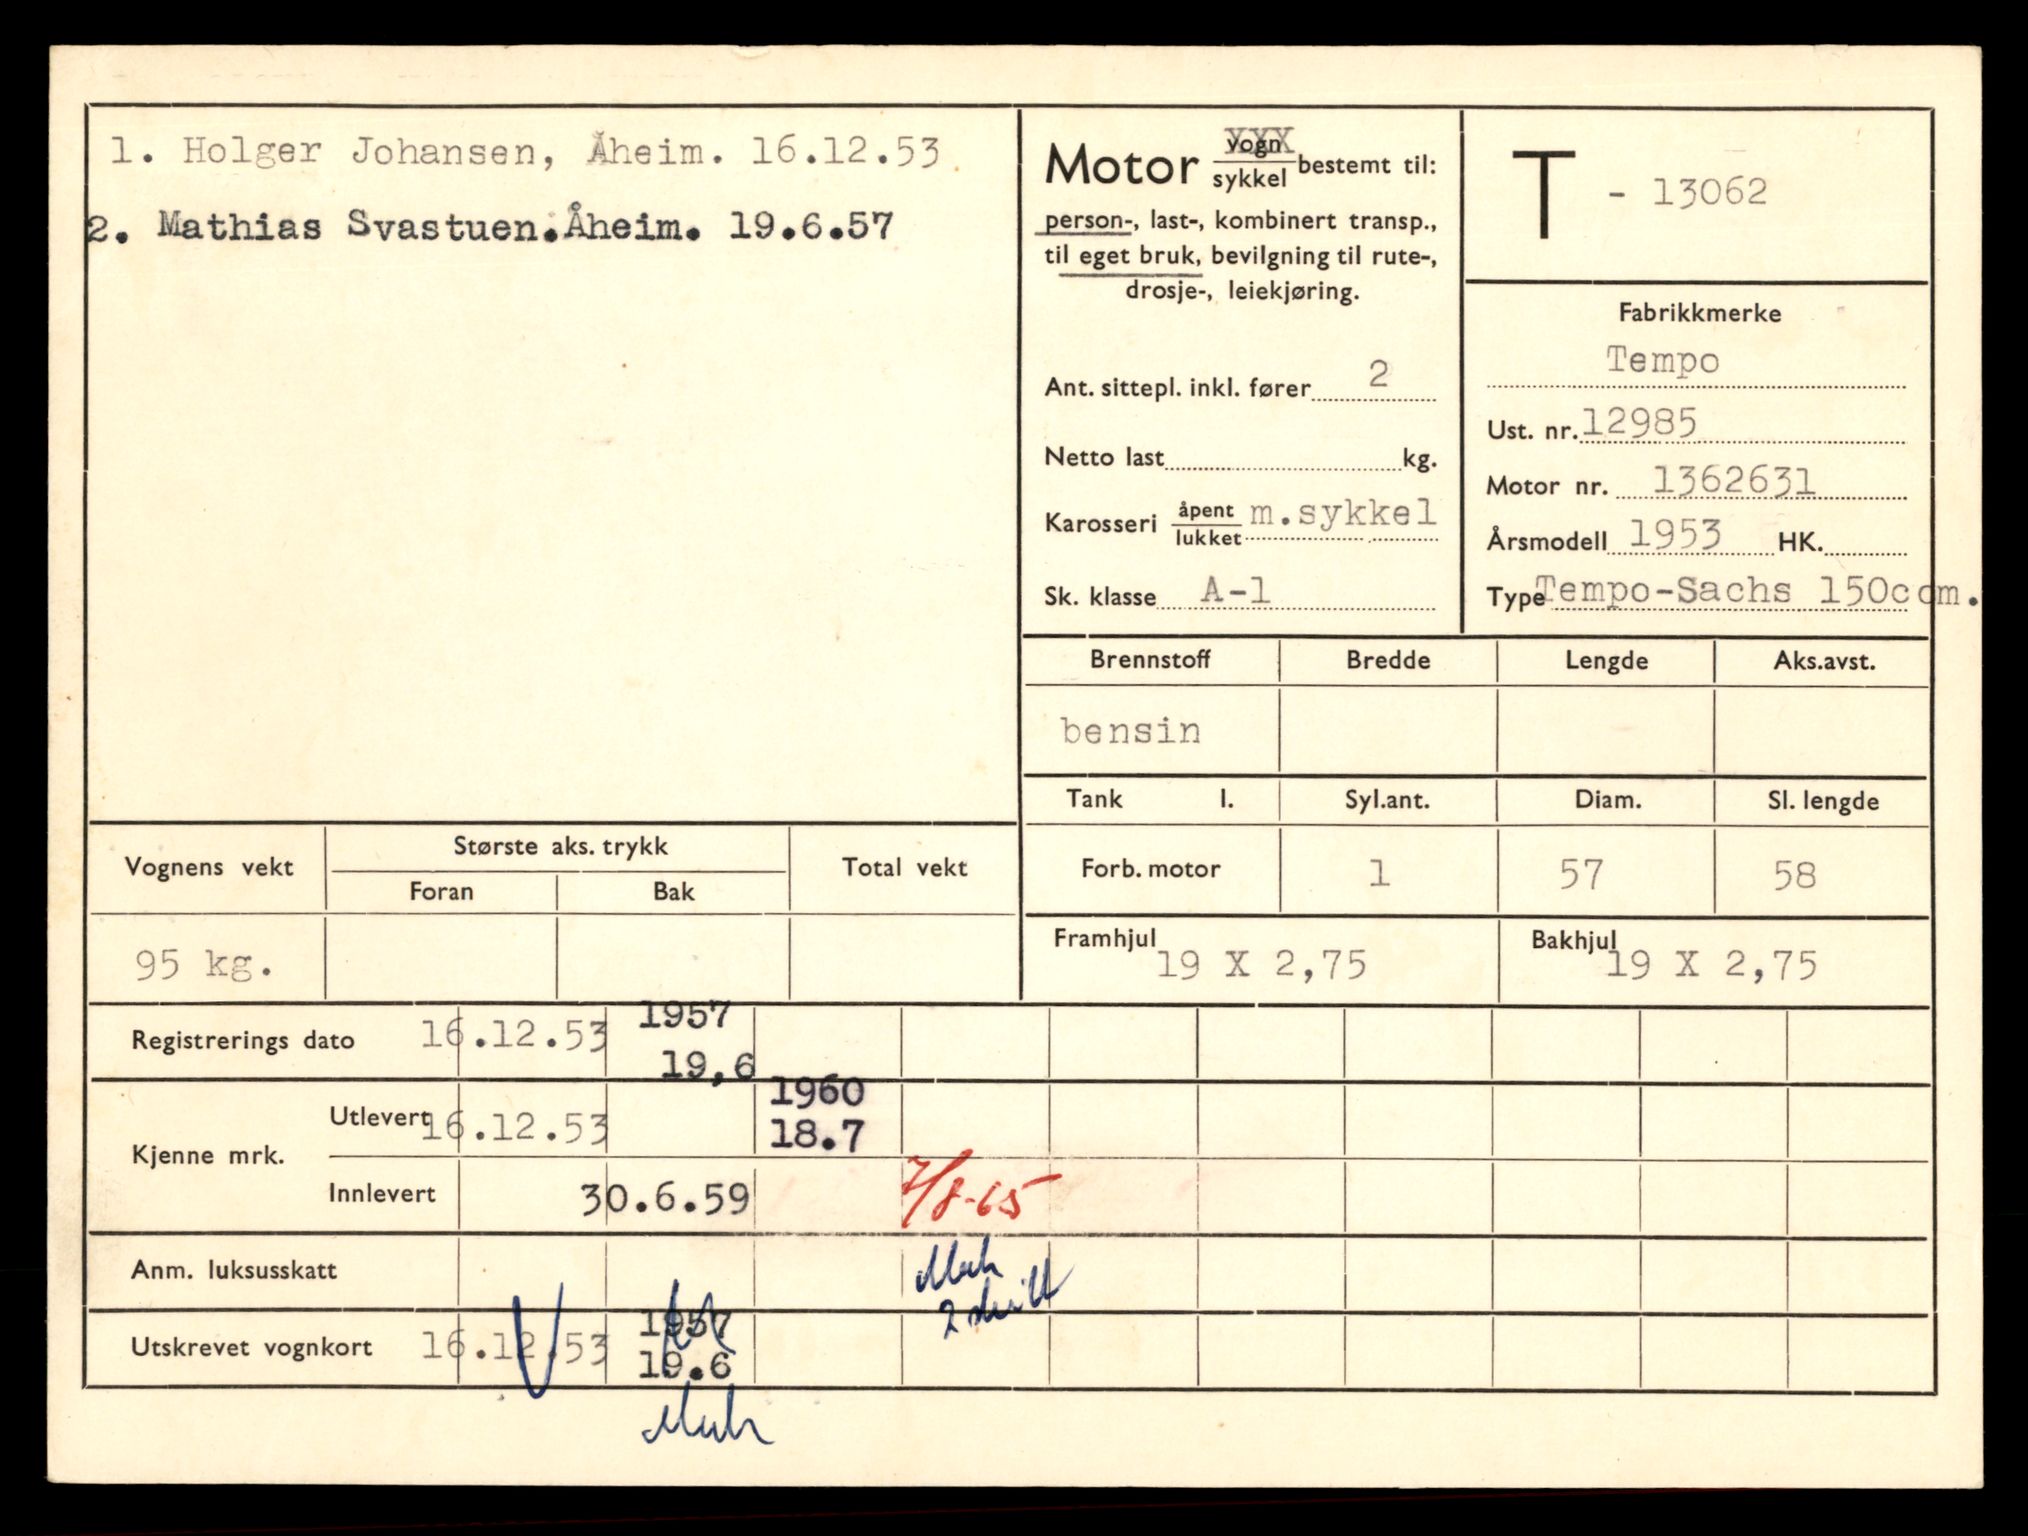 1. Holger Johansen, Åheim. 16.12.53
2. Mathias Svastuen.Åheim. 19.6.57
Motor vogn XXX
sykkel bestemt til:
person-, last-, kombinert transp.,
til eget bruk, bevilgning til rute-,
drosje-, leiekjøring.
Ant. sittepl. inkl. fører 2
Netto last kg.
Karosseri åpent m.sykkel
lukket
Sk. klasse A-1
T - 13062
Fabrikkmerke
Tempo
Ust. nr. 12985
Motor nr. 1362631
Årsmodell 1953 HK.
Type Tempo-Sachs 150ccm.
Brennstoff Bredde Lengde Aks.avst.
bensin
Tank l. Syl.ant. Diam. Sl. lengde
Forb. motor 1 57 58
Framhjul 19 X 2,75 Bakhjul 19 X 2,75
Vognens vekt Største aks. trykk Total vekt
Foran Bak
95 kg.
Registrerings dato 16.12.53 1957
19,6
Kjenne mrk. Utlevert 16.12.53 1960
18.7
Innlevert 30.6.59 7/8-65
Anm. luksusskatt
Utskrevet vognkort 16.12.53 1957
19.6